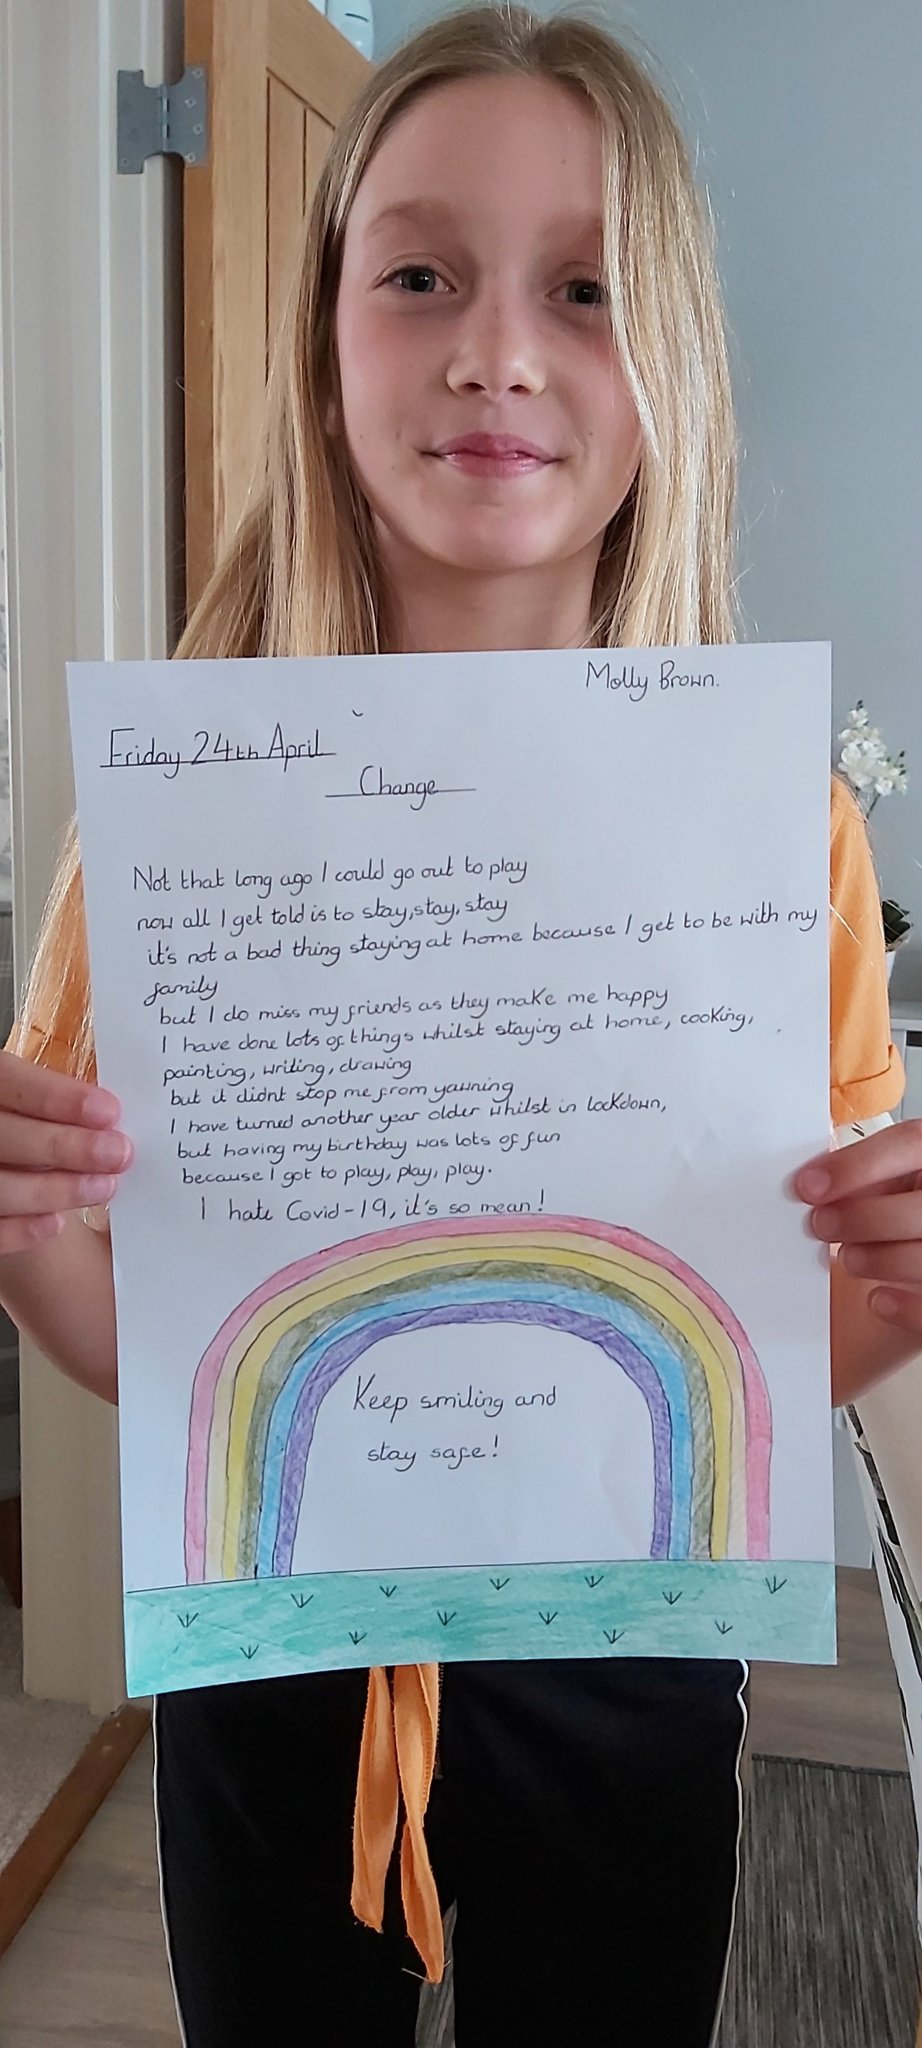 Molly Brown.
Friday 24th April
Change
Not that long ago I could go out to play
now all I get told is to stay, stay, stay
it's not a bad thing staying at home because I get to be with my
family
but I do miss my friends as they make me happy
I have done lots of things whilst staying at home, cooking,
painting, writing, drawing
but it didnt stop me from yawning
I have turned another year older whilst in lockdown,
but having my birthday was lots of fun
because I got to play, play, play.
I hate Covid-19, it's so mean!
Keep smiling and
stay safe!